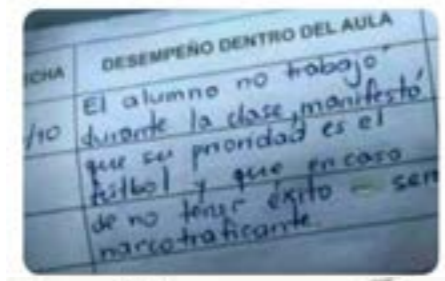 FECHA DESEMPEÑO DENTRO DEL AULA
/10 El alumno no trabajo
durante la clase, manifestó
que su prioridad es el
fútbol y que en caso
de no tener éxito - ser
narcotraficante.